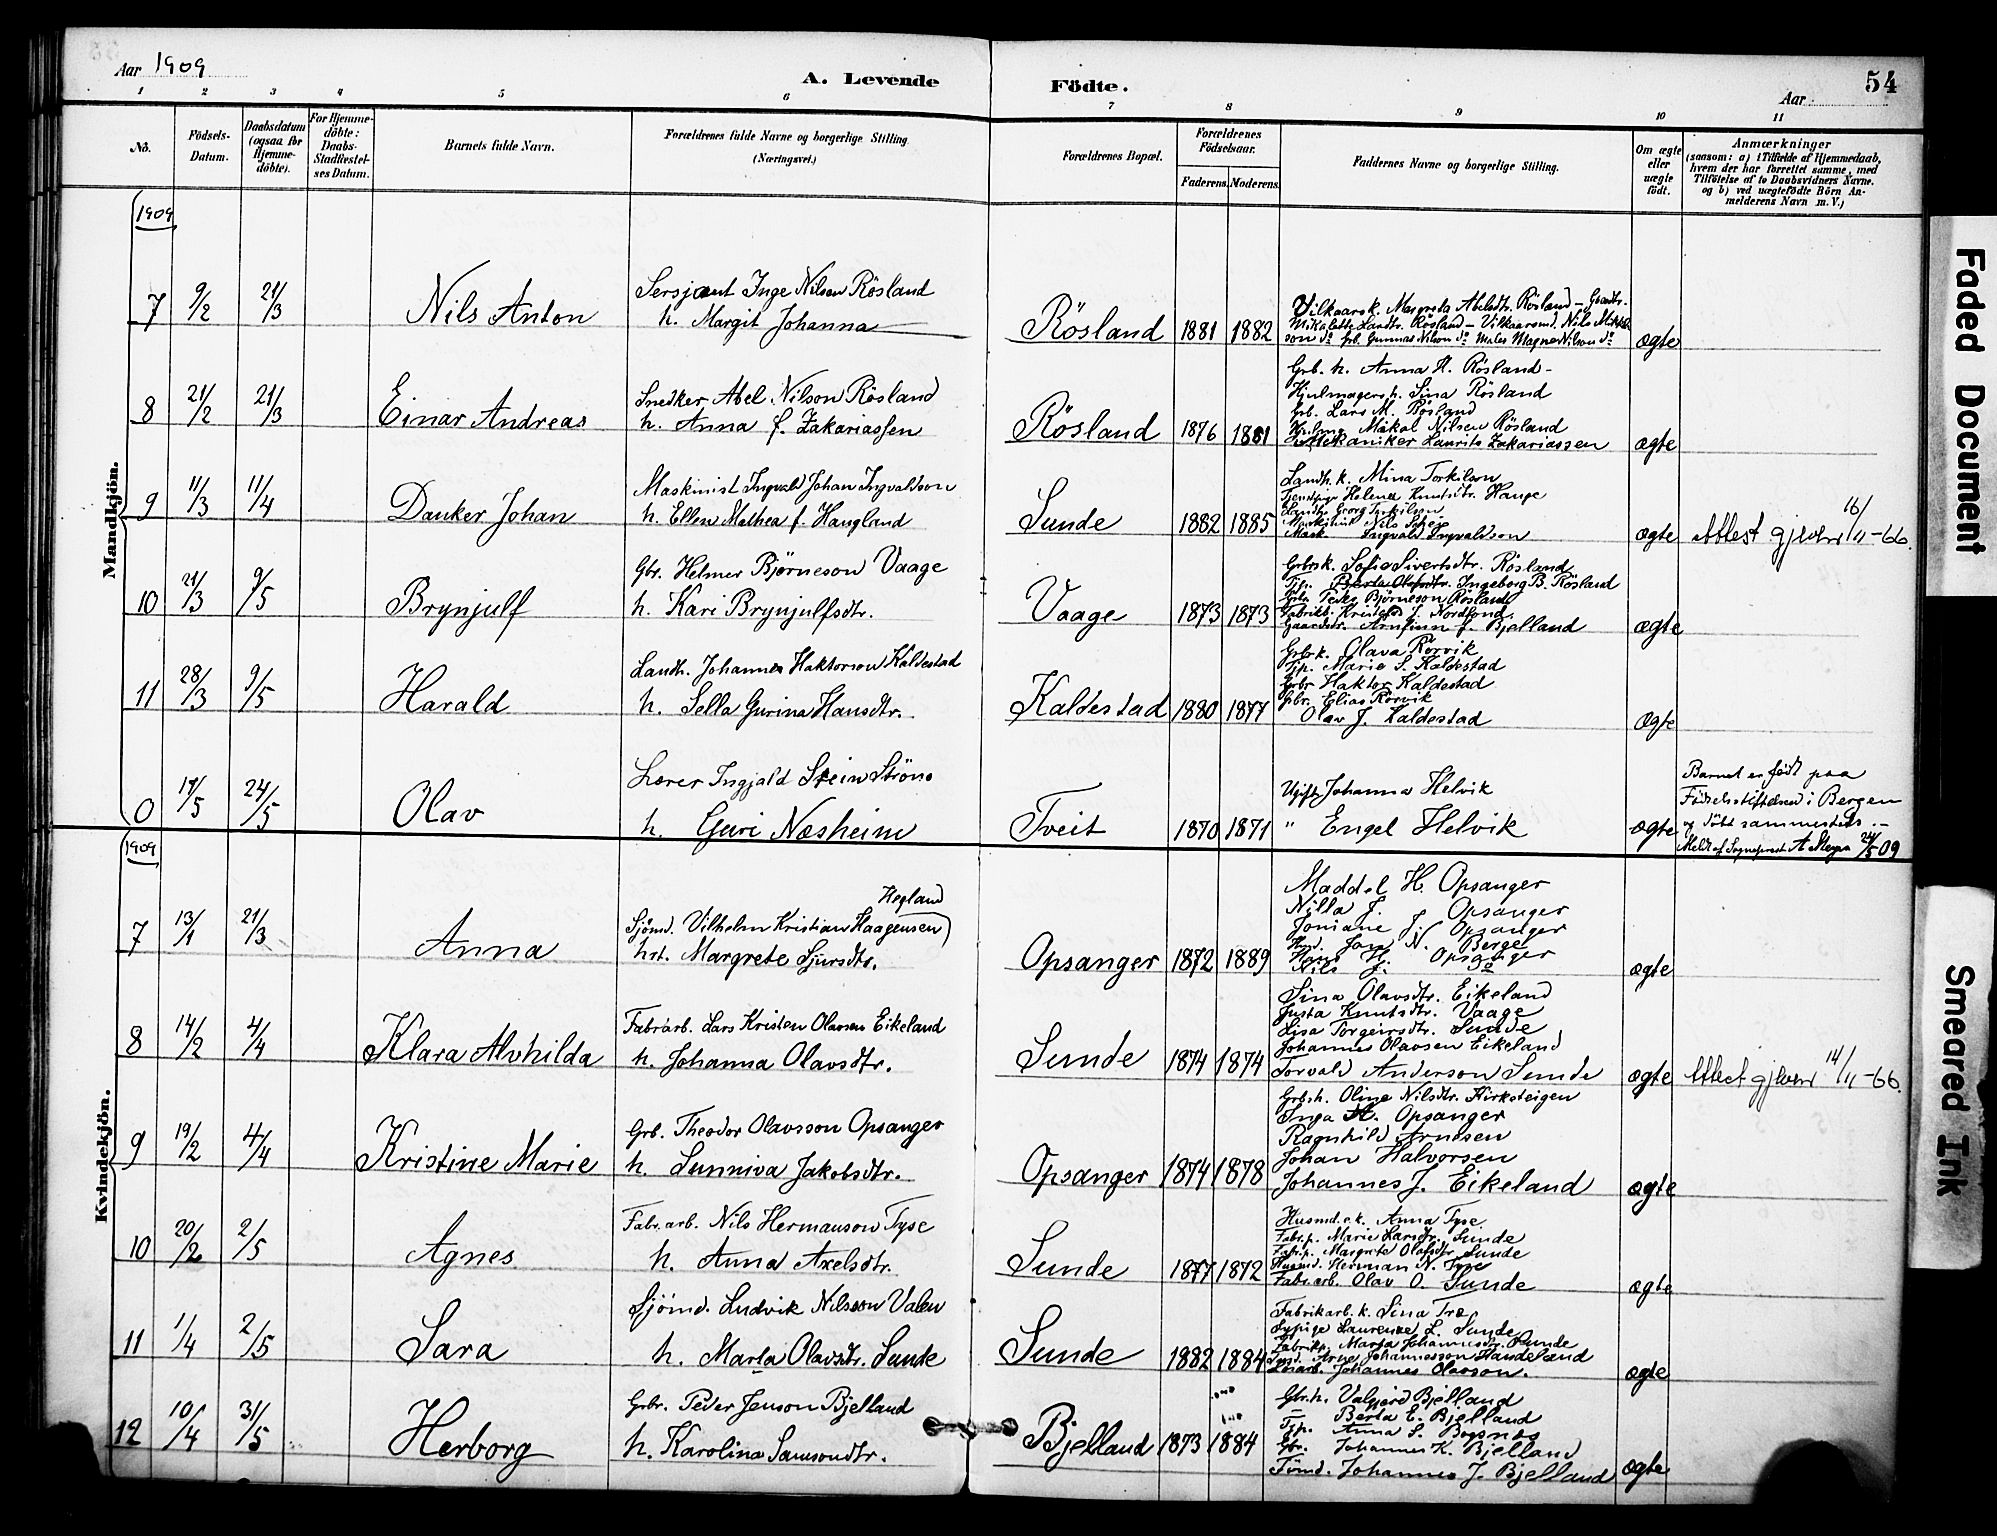 Aar 1909
A. Levende
Födte.
Aar
54
1 2 3 4 5 6 7 8 9 10 11
No.
Födsels-Datum.
Daabsdatum (ogsaa for Hjemme-döbte).
For Hjemme-döbte: Daabs-Stadfæstel-ses Datum.
Barnets fulde Navn.
Forældrenes fulde Navne og borgerlige Stilling (Næringsvei.)
Forældrenes Bopæl.
Forældrenes Födselsaar.
Faderens. Moderens.
Faddernes Navne og borgerlige Stilling.
Om ægte eller uægte födt.
Anmærkninger
(saasom: a) i Tilfælde af Hjemmedaab,
hvem der har forrettet samme, med
Tilföielse af to Daabsvidners Navne,
og b) ved uægtefödte Börn An-
melderens Navn m. V.)
Mandkjön.
1909
7 9/2 21/3 Nils Anton
Sersjant Inge Nilsen Rösland
h. Margit Johanna
Rösland 1881 1882
Vilkaarsk. Margreta Abelsdtr. Rösland - Gbrdtr.
Rösland - Vilkaarsmd. Nils
son do Gunnar Nilson do Magne Nilson do
ægte
8 21/2 21/3 Einar Andreas
Snedker Abel Nilson Rösland
h. Anna f. Zakariassen
Rösland 1876 1881
Grb. h. Anna H. Rösland -
Hjulmagersh. Sina Rösland
Grb. Lars M. Rösland
Mikal Nilsen Rösland
Mekaniker Laurits Zakariassen
ægte
9 11/3 11/4 Danker Johan
Maskinist Ingvald Johan Ingvaldson
h. Ellen Mathea f. Haugland
Sunde 1882 1885
Landh. k. Mina Torkilson
Helena Knutsdtr. Hauge
Landh. Georg Torkilson
Maskinist Nils
Mask. Ingvald Ingvaldson
ægte
Attest gjeven 16/11-66.
10 21/3 9/5 Brynjulf
Gbr. Helmer Bjørneson Vaage
h. Kari Brynjulfsdtr.
Vaage 1873 1873
Grbrsk. Sofie Sivertsdtr. Rösland
Tjp. Berta Olafsdtr. Ingeborg B. Rösland
Grb. Peder Bjørneson Rösland
Fabrikb. J. Nordfond
Gaardbr. Arnfinn J. Bjelland
ægte
11 28/3 9/5 Harald
Landh. Johannes Haktorson Kaldestad
h. Sella Gurina Hansdtr.
Kaldestad 1880 1877
Grbr k. Olava Rörvik
Tjp. Marie S. Kaldestad
Grbr Haktor Kaldestad
Gbr. Elias Rörvik
Olav J. Kaldestad
ægte
0 17/5 24/5 Olav
Lærer Ingjald Stein Ströno
h. Guri Næsheim
Tveit 1870 1871
Ugift Johanna Helvik
" Engel Helvik
ægte
Barnet er født paa
Födselsstiftelsen i Bergen
og döbt sammesteds. -
Meldt af Sogneprest 24/5 09
Kvindekjön.
1909
7 13/1 21/3 Anna
Hegland
Sjömd. Vilhelm Kristian Haagensen)
hst. Margrete Sjursdtr.
Opsanger 1872 1889
Maddel H. Opsanger
Nilla J. Opsanger
Joniane J. Opsanger
Jon N. Berge
Hans H. Opsanger
Nils J. do
ægte
8 14/2 4/4 Klara Alvhilda
Fabrarb. Lars Kristen Olavsen Eikeland
h. Johanna Olavsdtr.
Sunde 1874 1874
Sina Olavsdtr. Eikeland
Justa Knutsdtr. Vaage
Lisa Torgeirsdtr. Sunde
Johannes Olavsen Eikeland
Torvald Anderson Sunde
ægte
Attest gjeven 14/11-66.
9 19/2 4/4 Kristine Marie
Grb. Theodor Olavsson Opsanger
h. Sunniva Jakobsdtr.
Opsanger 1874 1878
Grbsh. Oline Nilsdtr. Kirksteigen
Inga H. Opsanger
Ragnhild Arnesen
Johan Halvorsen
Johannes J. Eikeland
ægte
10 20/2 2/5 Agnes
Fabr. arb. Nils Hermanson Tyse
h. Anna Axelsdtr.
Sunde 1877 1872
Husmd. e. k. Anna Tyse
Fabr. p. Marie Larsdtr. Sunde
Fabr. p. Margrete Olafsdtr. Sunde
Husmd. Herman N. Tyse
Fabr. arb. Olav O. Sunde
ægte
11 1/4 2/5 Sara
Sjömd. Ludvik Nilsson Valen
h. Marta Olavsdtr. Sunde
Sunde 1882 1884
Fabrikarb. k. Sina Træ
Sypige Laurense L. Sunde
Fabrikp. Marta Johannesdtr. Sunde
Arne Johannesson Handeland
Johannes Olavson.
ægte
12 10/4 31/5 Herborg
Grbr. Peder Jenson Bjelland
h. Karolina Samsondtr.
Bjelland 1873 1884
Gbr. h. Valgjerd Bjelland
— Berta E. Bjelland
Tjp. Anna S. Bogsnes
Gbr. Johannes K. Bjelland
Tömd. Johannes J. Bjelland
ægte
Faded Document
Smeared Ink